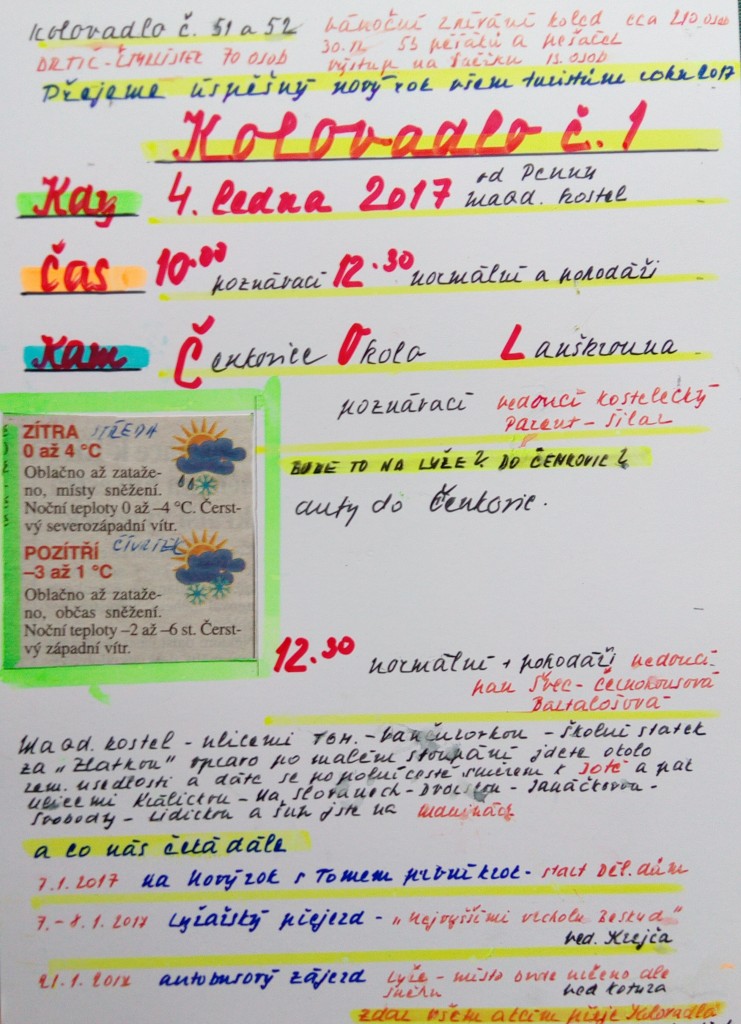 Kolovadlo č. 51 a 52 vánoční zpívání koled cca 210 osob
DRTIČ - ČMELÍSTEK 70 OSOB 30.12. 53 pěšáků a pešaček
výstup na 13 osob
Přejeme úspěšný nový rok všem turistům roku 2017
Kolovadlo č. 1
Kdy 4. ledna 2017 od Penny
maad. kostel
Čas 10.00 poznávací 12.30 normální a pohodáři
Kam Čenkovice Okolo Lanškrouna
poznávací vedoucí Kostelecký
Parent - Šilar
BUDE TO NA LYŽE? DO ČENKOVIC?
auty do Čenkovic.
ZÍTRA STŘEDA
0 až 4 °C
Oblačno až zataže-
no, místy sněžení.
Noční teploty 0 až –4 °C. Čerst-
vý severozápadní vítr.
POZÍTŘÍ ČTVRTEK
–3 až 1 °C
Oblačno až zataže-
no, občas sněžení.
Noční teploty –2 až –6 st. Čerst-
vý západní vítr.
12.30 normální + pohodáři vedoucí.
pan Švec - Černohousová
Bartalošová
Maad. kostel - ulicemi TGM. - Vančurovkou - školní statek
za "Zlatkou" vpravo po malém stoupání jdete okolo
zem. usedlosti a dáte se po polní cestě směrem k Jotě a pak
ulicemi Králickou - Na Slovanech - Dvorskou - Janáčkovou -
Svobody - Lidickou a šup jste na
a co nás čeká dále
7.1.2017 na Nový rok s Tomem první krok - start Děl. dům
7. - 8.1.2017 Lyžařský přejezd - "Nejvyššími vrcholy Beskyd"
ved. Krejča
21.1.2017 autobusový zájezd lyže - místo bude určeno dle
sněhu ved Kotyza
zdar všem akcím přeje Kolovadlo